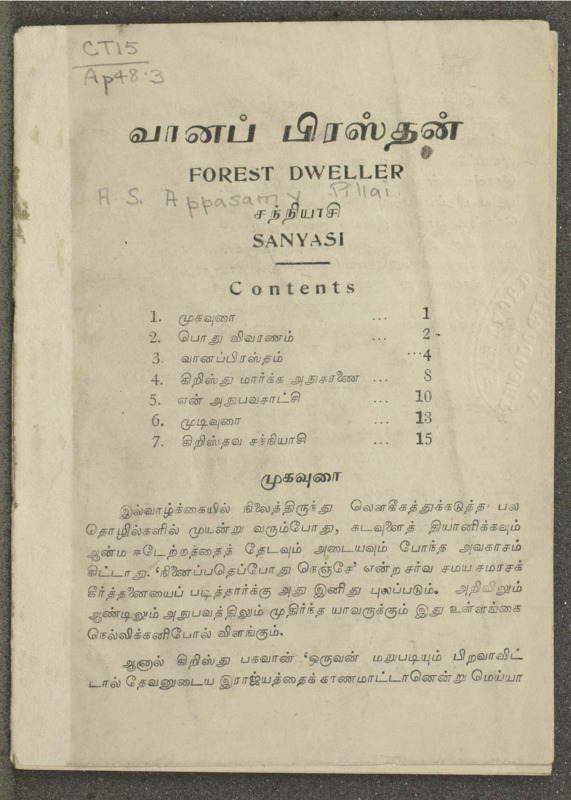 CT15
Ap48.3
வானப் பிரஸ்தன்
FOREST DWELLER
A S. Appasamy Pillai
சந்நியாசி
SANYASI
Contents
1. முகவுரை ... 1
2. பொது விவரணம் ... 2
3. வானப்பிரஸ்தம் ... 4
4. கிறிஸ்து மார்க்க அநுசரணை ... 8
5. என் அநுபவசாட்சி ... 10
6. முடிவுரை ... 13
7. கிறிஸ்தவ சந்நியாசி ... 15
முகவுரை
இல்வாழ்க்கையில் நிலைத்திருந்து லௌகீகத்துக்கடுத்த பல
தொழில்களில் முயன்று வரும்போது, கடவுளைத் தியானிக்கவும்
ஆன்ம ஈடேற்றத்தைத் தேடவும் அடையவும் போந்த அவகாசம்
கிட்டாது. ‘நினைப்பதெப்போது நெஞ்சே’ என்ற சர்வ சமய சமரசக்
கீர்த்தனையைப் படித்தார்க்கு அது இனிது புலப்படும். அறிவிலும்
ஆண்டிலும் அநுபவத்திலும் முதிர்ந்த யாவருக்கும் இது உள்ளங்கை
நெல்லிக்கனிபோல் விளங்கும்.
ஆனால் கிறிஸ்து பகவான் ‘ஒருவன் மறுபடியும் பிறவாவிட்
டால் தேவனுடைய இராஜ்யத்தைக் காணமாட்டானென்று மெய்யா